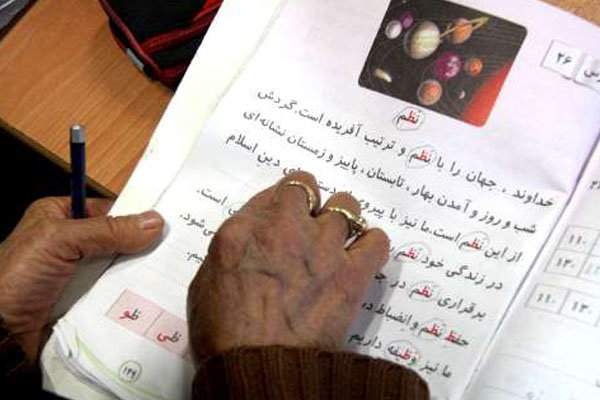 ۲۶
نظم
خداوند، جهان را با نظم و ترتیب آفریده است. گردش
شب و روز و آمدن بهار، تابستان، پاییز و زمستان نشانه‌ای
از این نظم است. ما نیز با دین اسلام
در زندگی خود نظم است.
برقراری نظم در می‌شود.
حفظ نظم و انضباط
ما نیز وظیفه داریم
ظی ظو
۱۴۹
۱۱۰
۱۳۰
۱۱۰ ۱۳۰